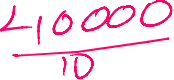 410000
10